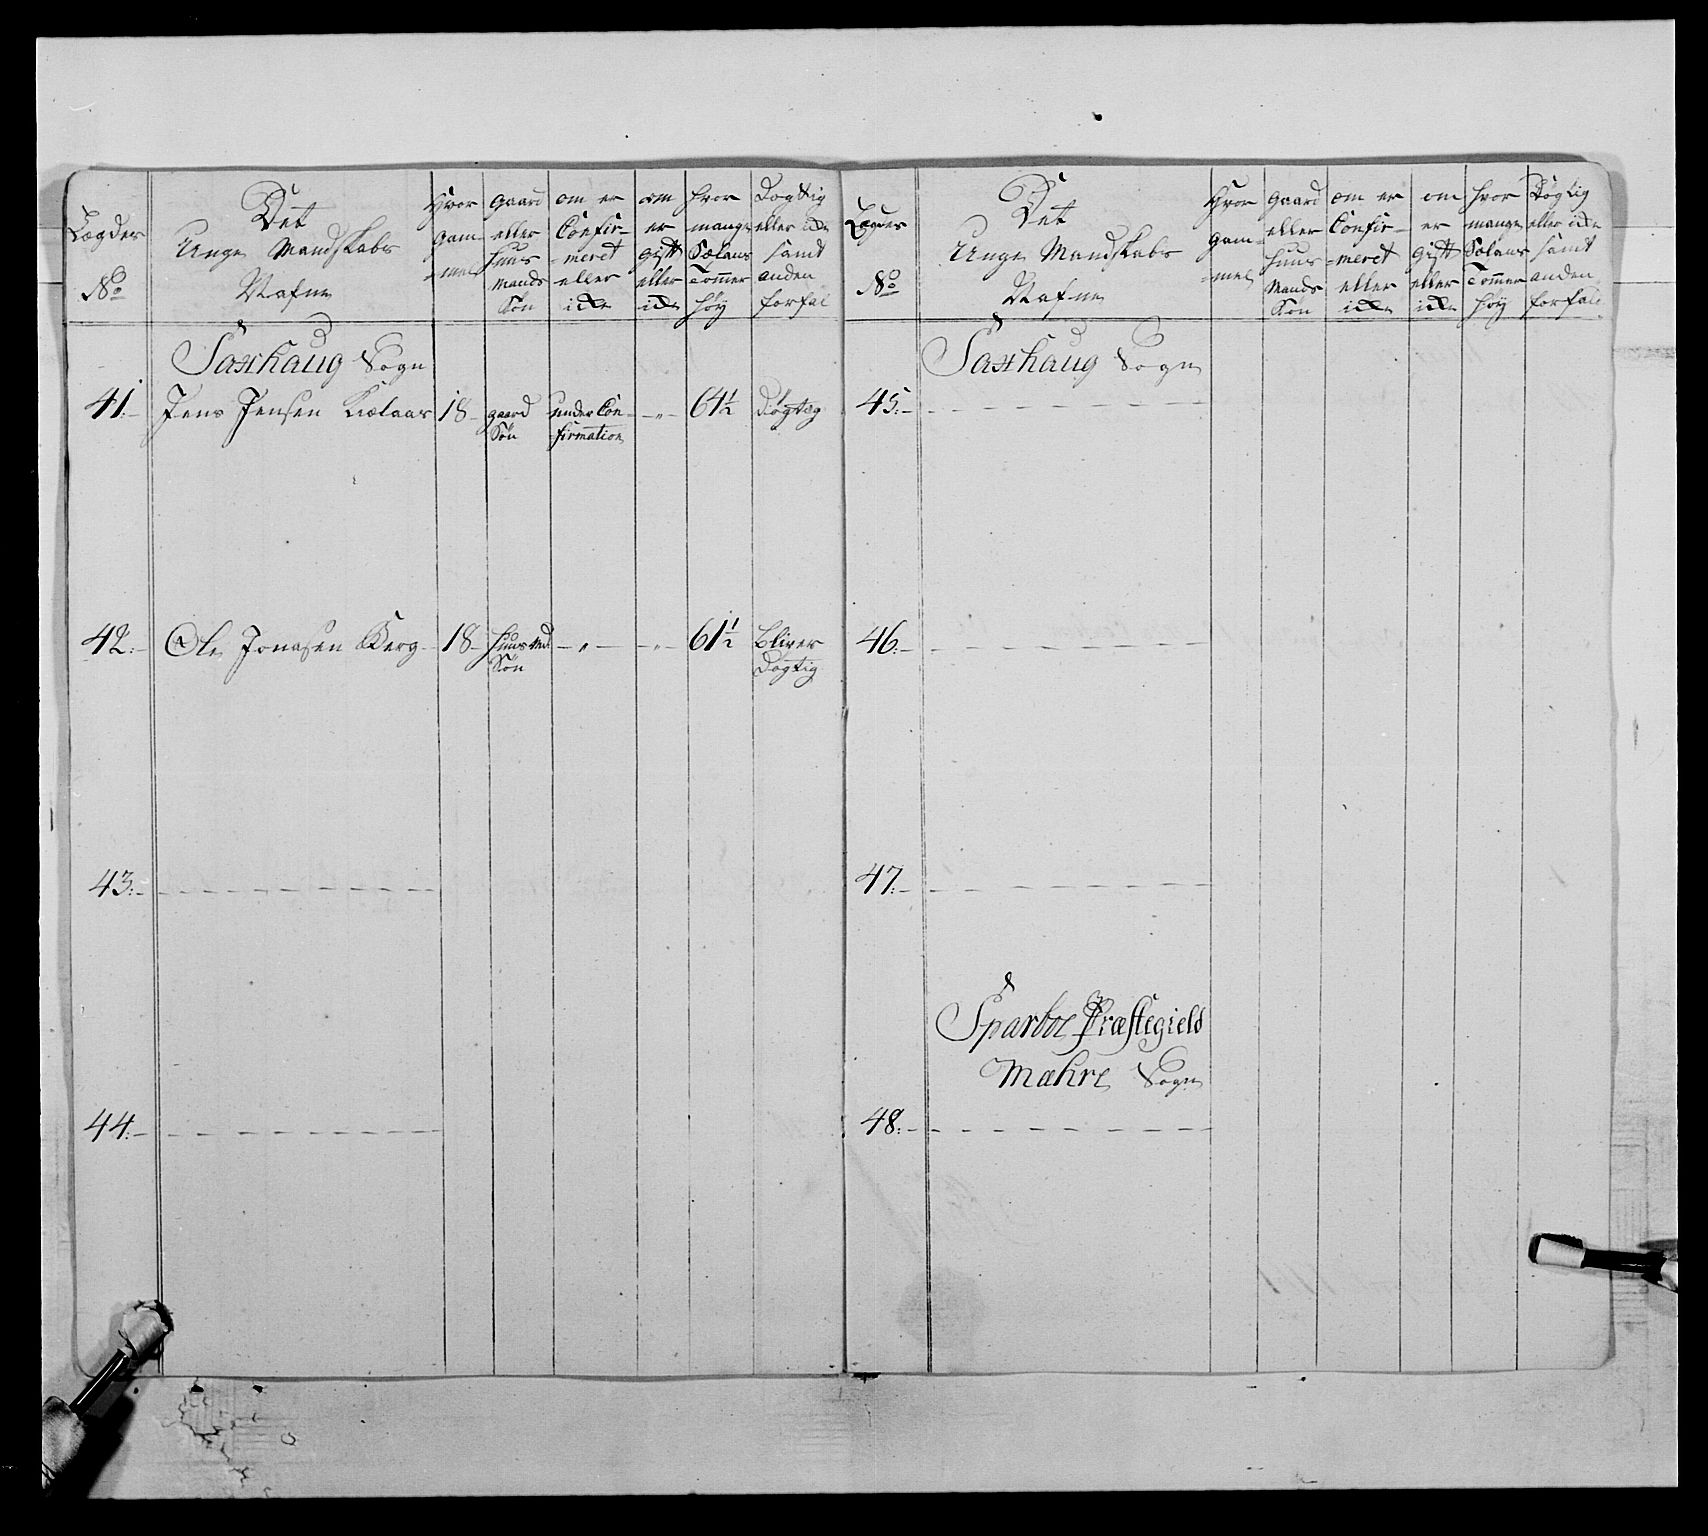 Lægder No
Det Unge Mandskabs Nafne
Hvor gam=mel
gaard eller Huus mands Søn
om er Confir=meret eller icke
om er gift eller icke
hvor mange Sælans Tommer høy
Dogtig eller icke samt anden forfal
Saxhaug Sogn
41:- Jens Jensen Kielaas 18- gaard Søn under Con=firmation -„- 64½ Døgtig
42:- Ole Jonasen Berg 18- Huusmd Søn -„- -„- 61½ Bliver Døgtig
43:-
44:-
Lægder No
Det Unge Mandskabs Nafne
Hvor gam=mel
gaard eller Huus Mands Søn
om er Confir=meret eller icke
om er gift eller icke
hvor mange Sælans Tommer høy
Døgtig eller icke samt anden forfald
Saxhaug Sogn
45:-
46:-
47:-
Sparboe Præstegield
Mæhre Sogn
48:-